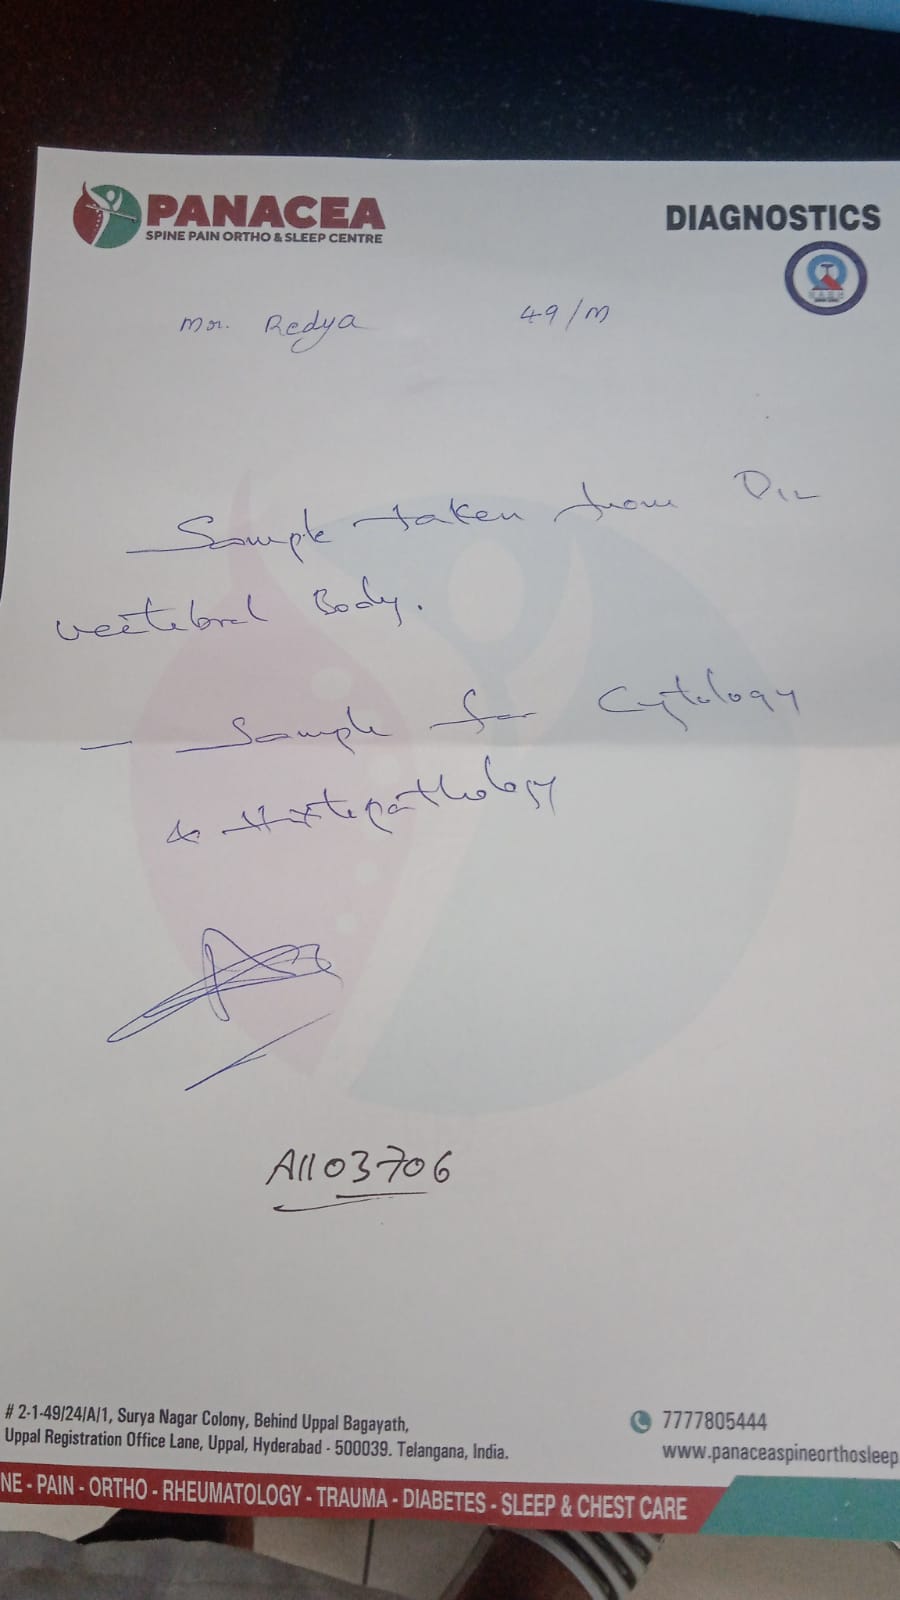 PANACEA
SPINE PAIN ORTHO & SLEEP CENTRE
DIAGNOSTICS
Mr. Redya 49/M
Sample taken from D12
vertebral Body.
- Sample for Cytology
& Histopathology
A1103706
# 2-1-49/24/A/1, Surya Nagar Colony, Behind Uppal Bagayath,
Uppal Registration Office Lane, Uppal, Hyderabad - 500039. Telangana, India.
7777805444
www.panaceaspineorthosleep
NE - PAIN - ORTHO - RHEUMATOLOGY - TRAUMA - DIABETES - SLEEP & CHEST CARE